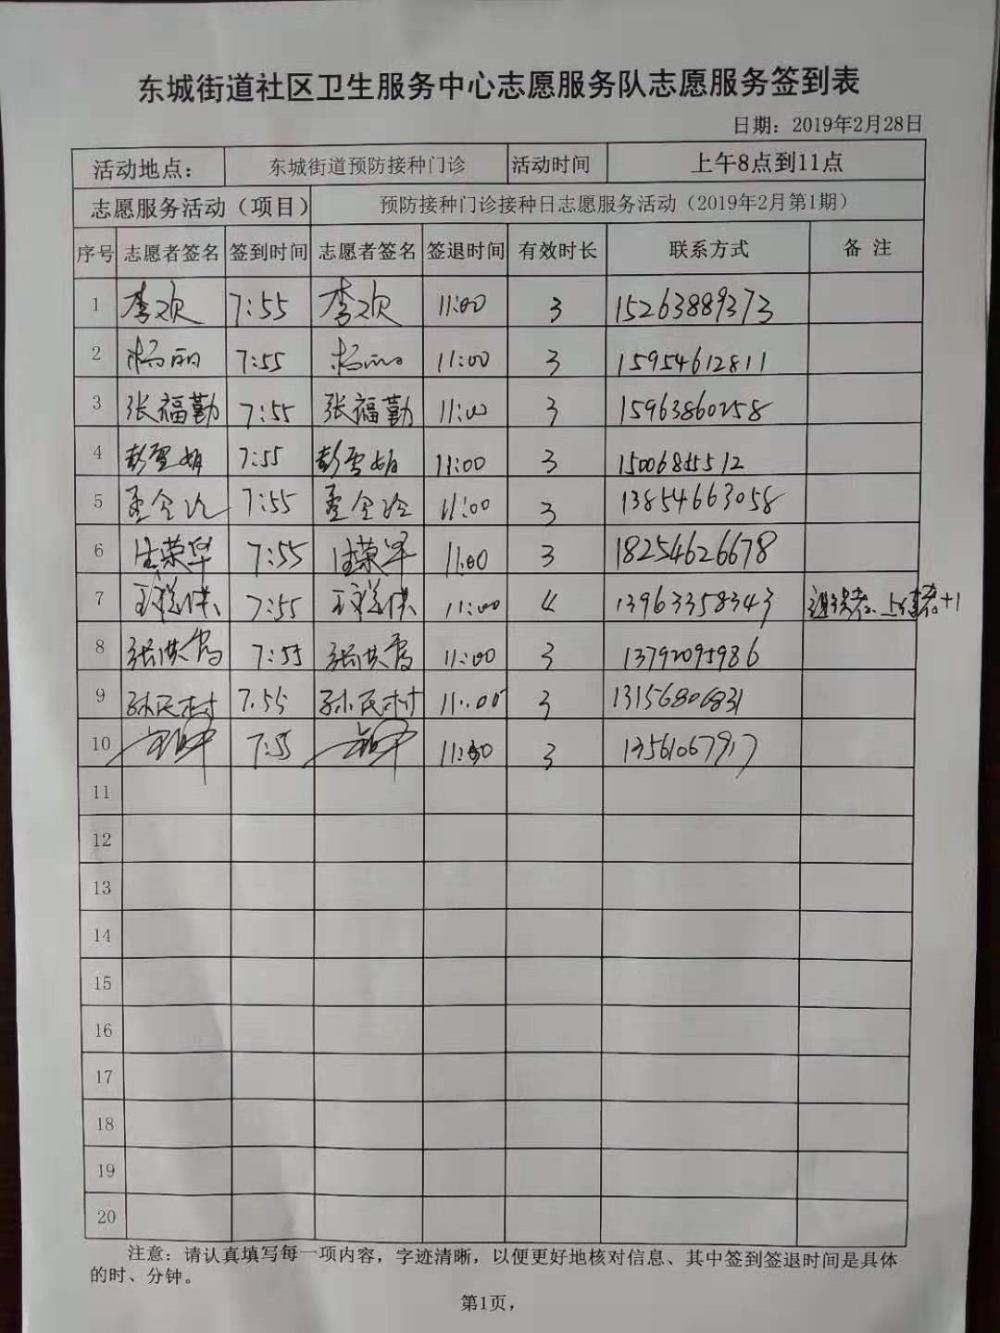 东城街道社区卫生服务中心志愿服务队志愿服务签到表
日期：2019年2月28日
活动地点： 东城街道预防接种门诊 活动时间 上午8点到11点
志愿服务活动（项目） 预防接种门诊接种日志愿服务活动（2019年2月第1期）
序号 志愿者签名 签到时间 志愿者签名 签退时间 有效时长 联系方式 备 注
1 李欢 7:55 李欢 11:00 3 15263889373
2 杨丽 7:55 杨丽 11:00 3 15954612811
3 张福勤 7:55 张福勤 11:00 3 15963860258
4 彭雪娟 7:55 彭雪娟 11:00 3 15006855512
5 孟令 7:55 孟令 11:00 3 13854663058
6 荣华 7:55 荣华 11:00 3 18254626678
7 7:55 11:00 4 13963358343 +1
8 张洪雪 7:55 张洪雪 11:00 3 13792095986
9 孙民村 7.55 孙民村 11:00 3 13156806831
10 7:55 3 13561067917
11
12
13
14
15
16
17
18
19
20
注意：请认真填写每一项内容，字迹清晰，以便更好地核对信息、其中签到签退时间是具体
的时、分钟。
第1页，